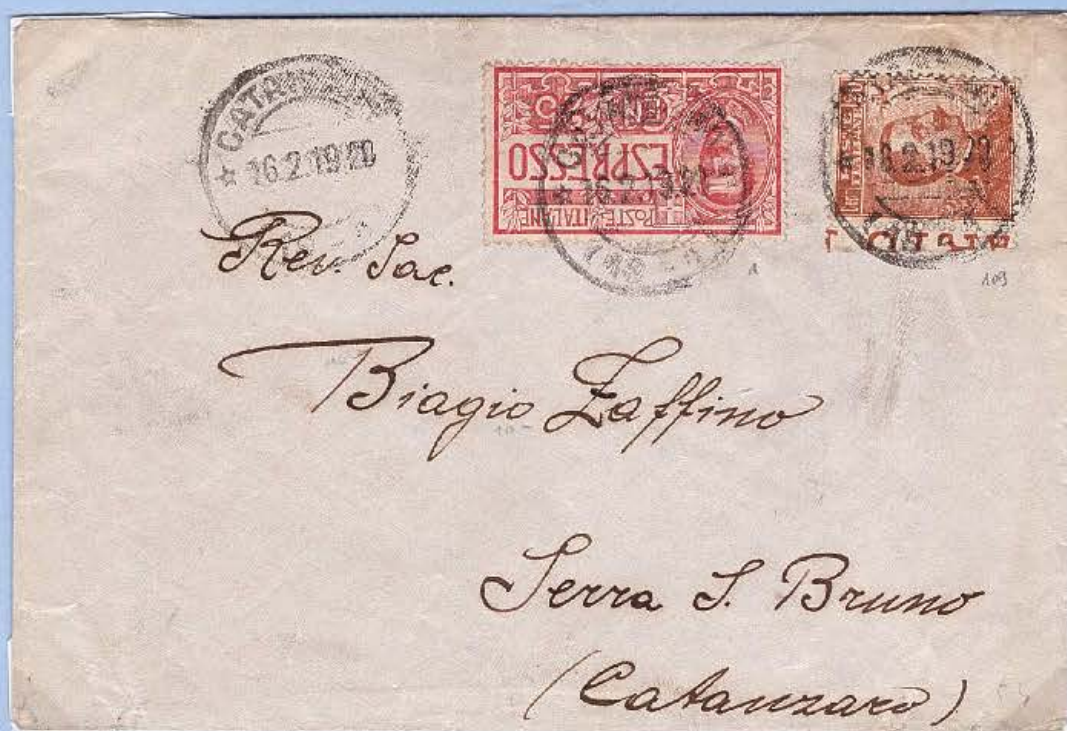 16.2.1920
ESPRESSO
POSTE ITALIANE
16.2.19
Rev. Sac.
109
Biagio Zaffino
Serra S. Bruno
(Catanzaro)